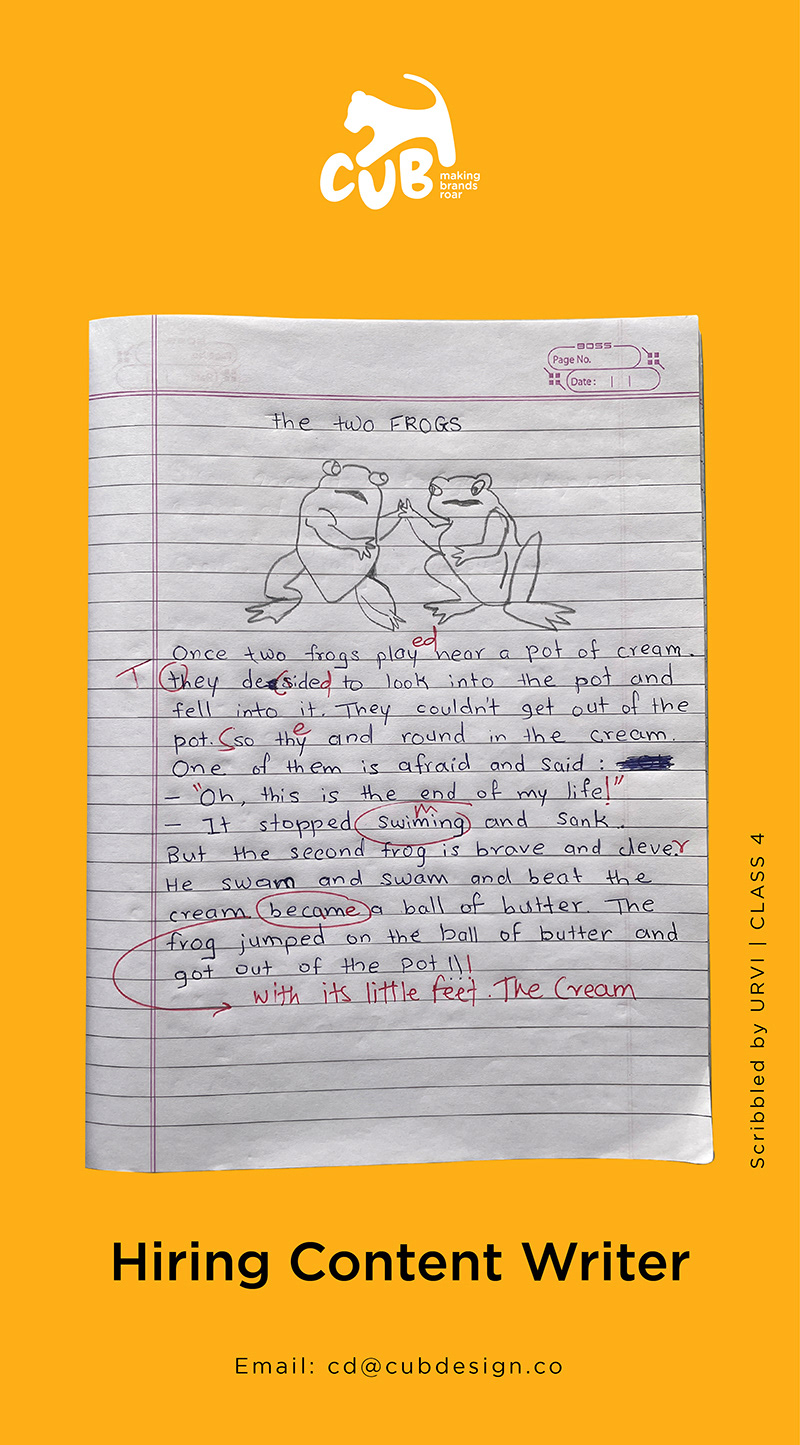 CUB
making
brands
roar
BOSS
Page No.
Date:
the two FROGS
ed
Once two frogs play near a pot of cream.
T they desided to look into the pot and
fell into it. They couldn't get out of the
pot. So so they and round in the cream.
e
One of them is afraid and said :
– "Oh, this is the end of my life!"
m
– It stopped swiming and sank.
But the second frog is brave and clever
He swam and swam and beat the
cream became a ball of butter. The
frog jumped on the ball of butter and
got out of the pot!!!
with its little feet. The Cream
Scribbled by URVI | CLASS 4
Hiring Content Writer
Email: cd@cubdesign.co